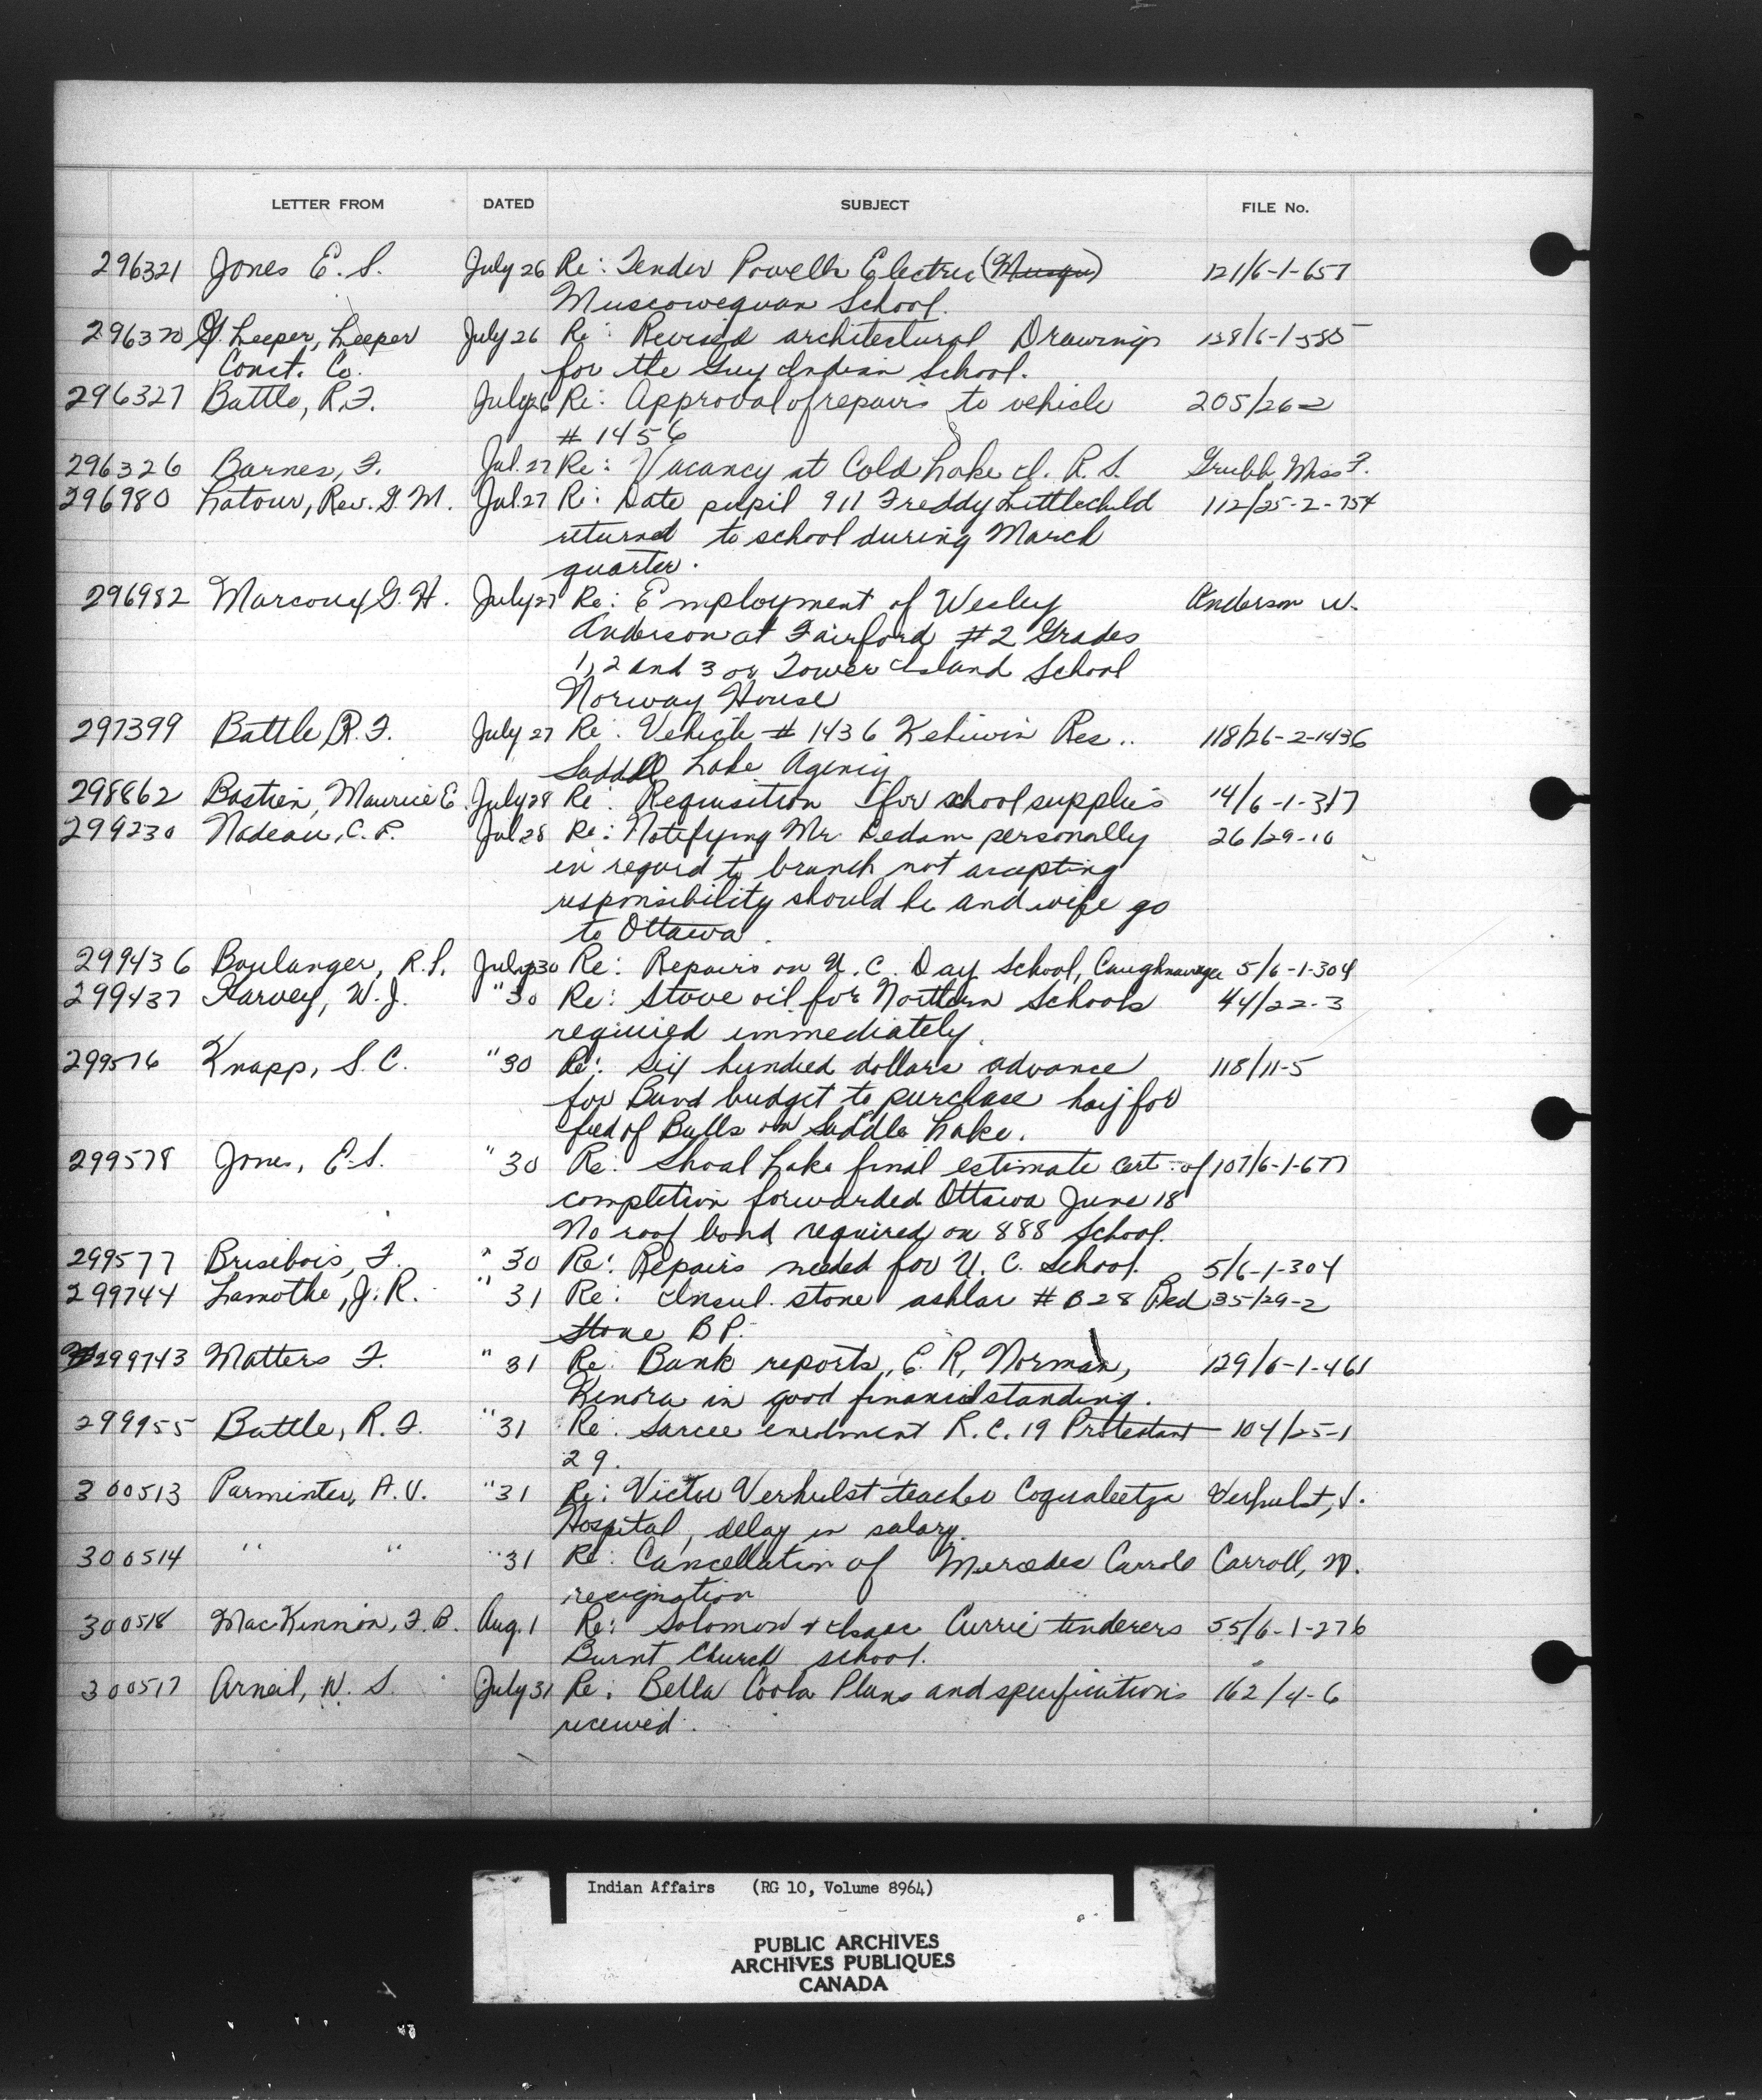 LETTER FROM DATED SUBJECT FILE No.
296321 Jones E. S. July 26 Re: Tender Powells Electric (Musqu) 121/6-1-657
Muscowequan School.
296320 G. Leeper, Leeper July 26 Re: Revised architectural Drawings 128/6-1-585
Const. Co. for the Guy Indian School.
296327 Battle, R.F. July 26 Re: Approval of repairs to vehicle 205/26-2
# 1456
296326 Barnes, F. Jul. 27 Re: Vacancy at Cold Lake I. R. S. Grubb, Miss F.
296980 Latour, Rev. G. M. Jul. 27 Re: Date pupil 911 Freddy Littlechild 112/25-2-754
returned to school during March
quarter.
296982 Marcoux G. H. July 27 Re: Employment of Wesley Anderson W.
Anderson at Fairford #2 Grades
1, 2 and 3 or Tower Island School
Norway House
297399 Battle R. F. July 27 Re: Vehicle # 1436 Kehiwin Res.. 118/26-2-1436
Saddle Lake Agency
298862 Bastien, Maurice E. July 28 Re: Requisition for school supplies 14/6-1-317
299230 Nadeau, C. P. Jul 28 Re: Notifying Mr. Dedam personally 26/29-10
in regard to branch not accepting
responsibility should he and wife go
to Ottawa.
299436 Boulanger, R. L. July 30 Re: Repairs on U. C. Day School, Caughnawaga 5/6-1-304
299437 Harvey, W. J. " 30 Re: Stove oil for Northern Schools 44/22-3
required immediately.
299576 Knapp, S. C. " 30 Re: Six hundred dollars advance 118/11-5
for Band budget to purchase hay for
feed of Bulls on Saddle Lake.
299578 Jones, E. S. " 30 Re: Shoal Lake final estimate cert. of 107/6-1-677
completion forwarded Ottawa June 18
No roof bond required on 888 School.
299577 Brisebois, F. " 30 Re: Repairs needed for U. C. School. 5/6-1-304
299744 Lamothe, J. R. " 31 Re: Insul. stone ashlar # B28 Red 35/29-2
Stone B P.
299743 Matters F. " 31 Re: Bank reports, E. R. Norman, 129/6-1-461
Kenora in good financial standing.
299955 Battle, R. F. " 31 Re: Sarcee enrolment R. C. 19 Protestant 104/25-1
29.
300513 Parminter, A. V. " 31 Re: Victor Verhulst teacher Coqualeetza Verhulst, V.
Hospital, delay in salary.
300514 " " " 31 Re: Cancellation of Mercedes Carroll Carroll, M.
resignation
300518 MacKinnon, F. B. Aug. 1 Re: Solomon & Isaac Currie tenderers 55/6-1-276
Burnt Church school.
300517 Arneil, W. S. July 31 Re: Bella Coola Plans and specifications 162/4-6
received.
Indian Affairs (RG 10, Volume 8964)
PUBLIC ARCHIVES
ARCHIVES PUBLIQUES
CANADA